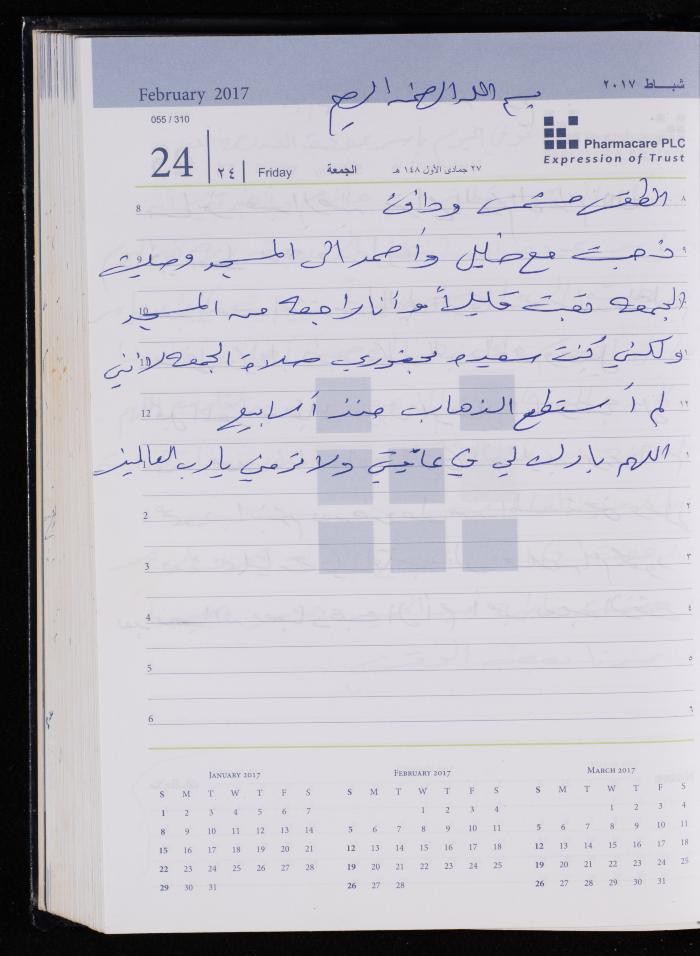 February 2017
بسم الله الرحمن الرحيم
شباط ٢٠١٧
055 / 310
24 | ٢٤ | Friday الجمعة ٢٧ جمادى الأول ١٤٨ هـ
Pharmacare PLC
Expression of Trust
8 الطقس مشمس ودافئ ٨
9 ذهبت مع خليل وأحمد الى المسجد وصليت ٩
10 الجمعه تعبت قليلاً وأنا راجعه من المسجد ١٠
11 ولكنني كنت سعيده بحضوري صلاة الجمعه لأنني ١١
12 لم أستطع الذهاب منذ أسابيع ١٢
1 اللهم بارك لي في عافيتي ولا ترمني يا رب العالمين ١
2 ٢
3 ٣
4 ٤
5 ٥
6 ٦
JANUARY 2017
S M T W T F S
1 2 3 4 5 6 7
8 9 10 11 12 13 14
15 16 17 18 19 20 21
22 23 24 25 26 27 28
29 30 31
FEBRUARY 2017
S M T W T F S
1 2 3 4
5 6 7 8 9 10 11
12 13 14 15 16 17 18
19 20 21 22 23 24 25
26 27 28
MARCH 2017
S M T W T F S
1 2 3 4
5 6 7 8 9 10 11
12 13 14 15 16 17 18
19 20 21 22 23 24 25
26 27 28 29 30 31